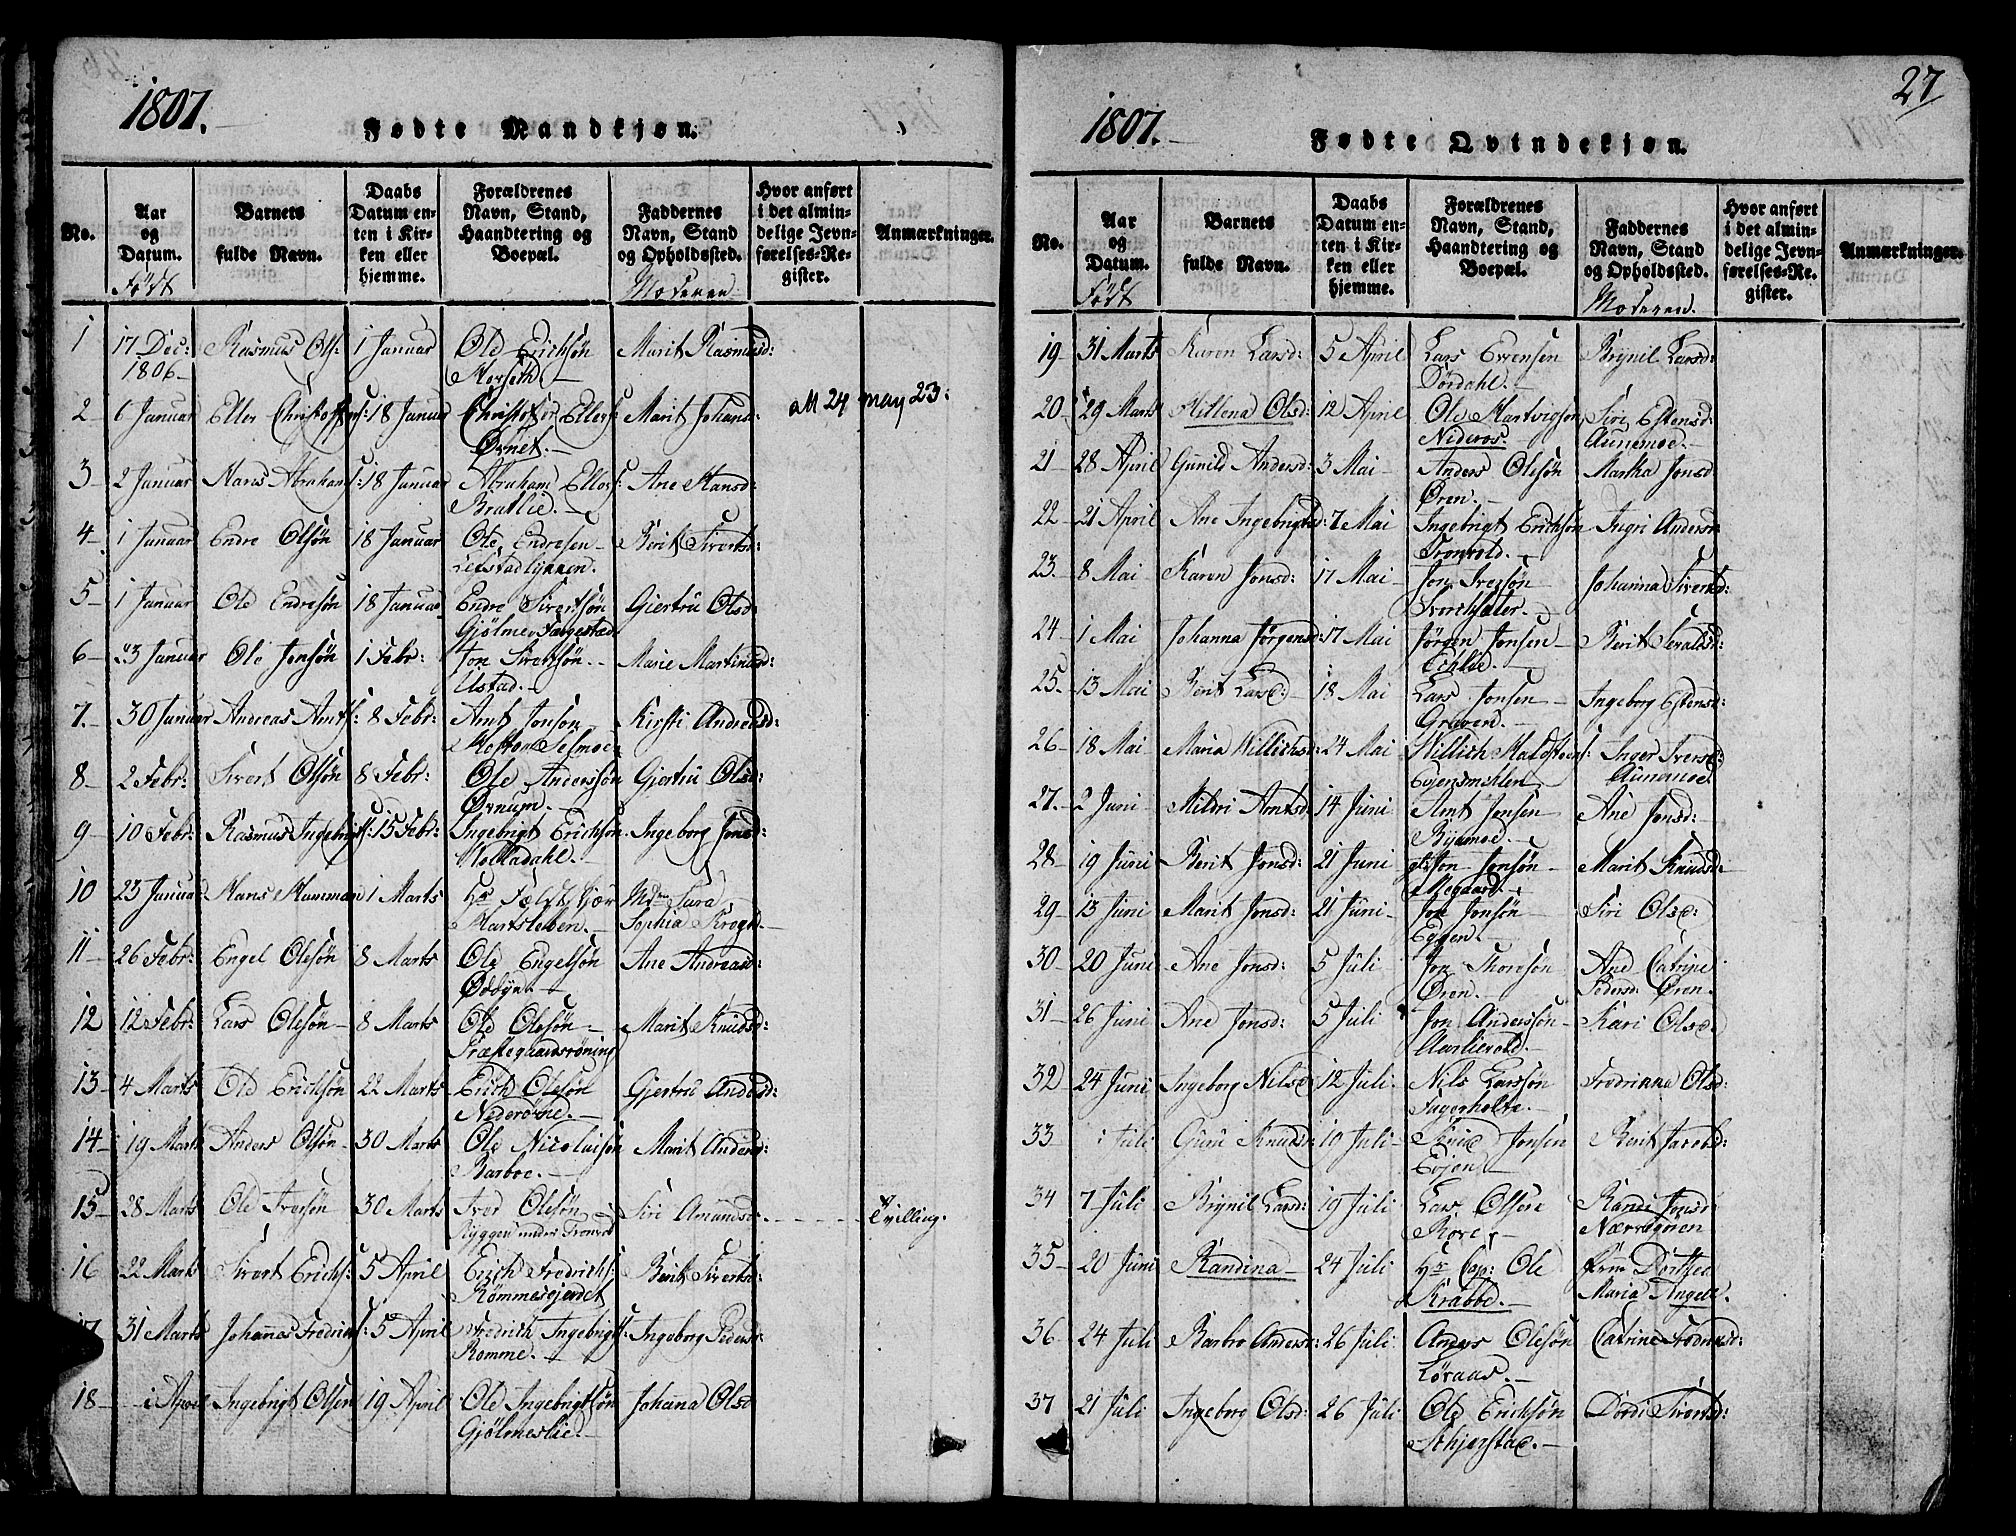 1807.
Fødte Mandkjøn.
No.
Aar og Datum.
Født
Barnets fulde Navn.
Daabs Datum enten i Kirken eller hjemme.
Forældrenes Navn, Stand, Haandtering og Boepæl.
Faddernes Navn, Stand og Opholdssted.
Moderen
Hvor anført i det almindelige Jevnførelses-Register.
Anmærkninger.
1 17 Dec: Rasmus Ols: 1 Januar Ole Erichsøn Marit Rasmusd:
1806 Morseth
2 6 Januar Eller Christoffers: 18 Januar Christoffer Ellers: Marit Johansd: att 24 may 23:
Øvnet.
3 2 Januar Hans Abrahams: 18 Januar Abraham Ellers: Ane Hansd:
Bratlie.
4 1 Januar Endre Olsøn 18 Januar Ole Endresen Berit Siverts:
5 1 Januar Ole Endresøn 18 Januar Endre Sivertsøn Giertru Olsd:
Gjølme Fargestad
6 23 Januar Ole Jonsøn 1 Febr: Jon Sivertsøn Marie Martinusd:
Ustad.
7. 30 Januar Andreas Amts: 8 Febr: Amt Jonsøn Kirsti Andreasd:
8 2 Febr: Sivert Olsøn 8 Febr: Ole Anderssøn Gjertru Olsd:
Øvnum.
9 10 Febr: Rasmus Ingebrigts: 15 Febr: Ingebrigt Erichsøn Ingeborg Jonsd:
10 23 Januar Hans Hamman 1 Marts Hr Feltskjær Mdm Sara
Martsleben. Sophia Krogh
11 26 Febr: Engel Olesøn 8 Marts Ole Engelsøn Ane Andreasd:
12 12 Febr: Lars Olesøn 8 Marts Ole Olesøn Marit Knudsd:
13 4 Marts Ole Erichsøn 22 Marts Erich Olesøn Gjertru Andersd:
14 19 Marts Anders Olsøn 30 Marts Ole Nicolaisøn Marit Andersd:
Barboe.
15 28 Marts Ole Iversøn 30 Marts Iver Olesøn Siri Amundsd. Tvilling.
Ryggen under
16 22 Marts Sivert Erichs: 5 April Erich Fredrichs: Berit Sivertsd:
Rommesgjerdet
17 31 Marts Johannes Fredrichs: 5 April Fredrich Ingebrigts: Ingeborg Pedersd:
Romme.
18 1 April Ingebrigt Olsen 19 April Ole Ingebrigtsøn Johanna Olsd
Gjølmeslie.
27
1807.
Fødte Qvindekjøn.
No.
Aar og Datum.
Født
Barnets fulde Navn.
Daabs Datum enten i Kirken eller hjemme.
Forældrenes Navn, Stand, Haandtering og Boepæl.
Faddernes Navn, Stand og Opholdssted.
Moderen.
Hvor anført i det almindelige Jevnførelses-Register.
Anmærkninger.
19 31 Marts Karen Larsd: 5 April Lars Evensen Brynil Larsd:
Dørdahl.
20 29 Marts Hellena Olsd: 12 April Ole Hartvigsen Siri Estensd:
Nideros. Aunemoe.
21 28 April Gunild Andersd: 3 Mai Anders Olesøn Martha Jonsd
Øren.
22 21 April Ane Ingebrigtsd: 7 Mai Ingebrigt Erichsøn Ingri Anders
Tronvold.
23. 8 Mai Karen Jonsd: 17 Mai Jon Iversøn Johanna Sivertsd:
24 1 Mai Johanna Jørgensd: 17 Mai Jørgen Jonsen Berit
25. 13 Mai Berit Larsd: 18 Mai Lars Jonsen Ingeborg Estensd:
Graven.
26 18 Mai Maria Willichsd: 24 Mai Willich Inger Iversd:
Aunemoe.
27. 2 Juni Mildri Amtsd: 14 Juni Amt Jonsen Ane Jonsd:
28 19 Juni Berit Jonsd: 21 Juni Jon Jonsøn Marit Knudsd
Megaard.
29 13 Juni Marit Jonsd: 21 Juni Jon Jonsøn Siri Olsd:
Eggen.
30 20 Juni Ane Jonsd: 5 Juli Jon Thoresøn Ane Catrine
Øren. Pedersd: Øren.
31 26 Juni Ane Jonsd: 5 Juli Jon Anderssøn Kari Olsd:
Aarlivold.
32 24 Juni Ingeborg Nilsd 12 Juli Nils Larssøn Fredrikka Olsd:
Fagerholte.
33 1 Juli Guru Knudsd: 10 Juli Knud Jonsen Berit Jacobsd:
Evjen
34 7 Juli Brynil Larsd: 19 Juli Lars Olsen Randi Jonsd:
35 20 Juni Randina 24 Juli Hr Cap: Ole Frue Dorthe
Krabbe. Maria Angell.
36 24 Juli Barbro Andersd: 26 Juli Anders Olesøn Catrine
Løraas.
37 21 Juli Ingeborg Olsd: 26 Juli Ole Erichsøn Dordi Sivertsd:
Schjerstad.